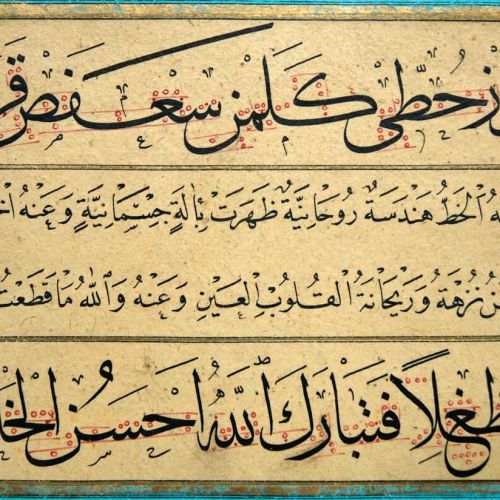 حطي كلمن سعفص
الخَطُّ هَنْدَسَةٌ رُوحَانِيَّةٌ ظَهَرَتْ بِاٰلَةٍ جِسْمَانِيَّةٍ وَعَنْهُ
نُزْهَةُ وَرَيْحَانَةُ القُلُوبِ العَيْنِ وَعَنْهُ وَاللّٰهُ مَا قَطَعْتُ
فتبارك الله احسن